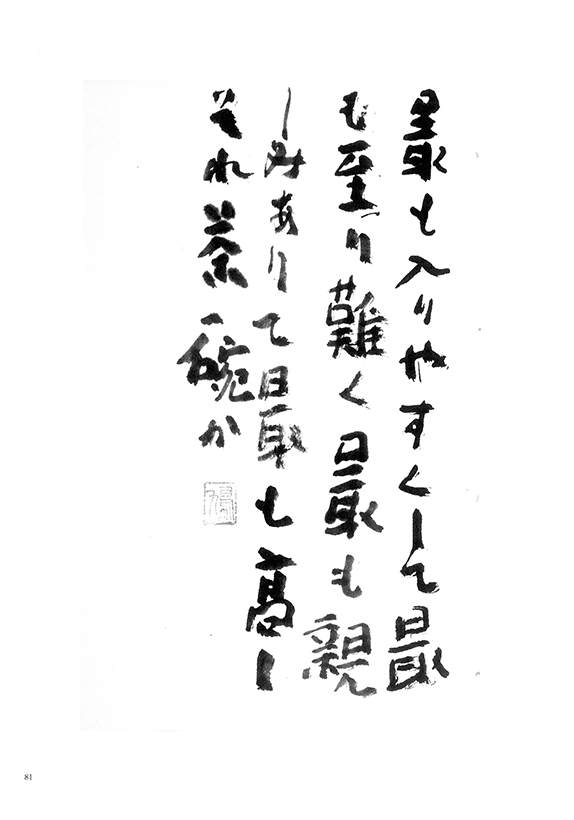 最も入りやすくして最
も至り難く最も親
しみありて最も高し
それ茶碗か
81